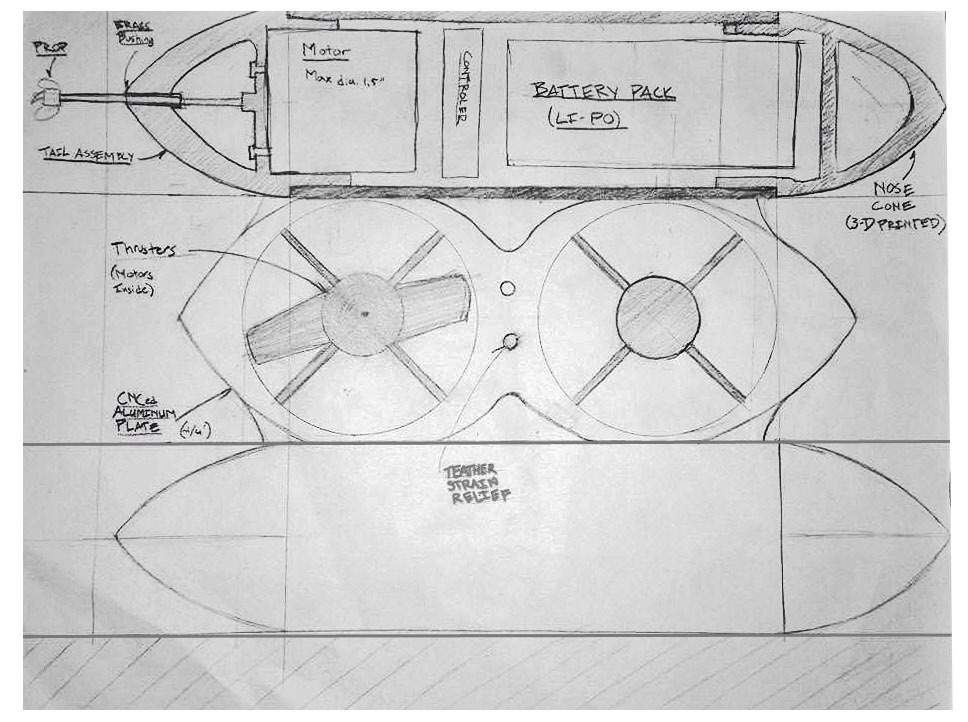 PROP
BRASS
Bushing
TAIL ASSEMBLY
Motor
Max dia. 1.5"
CONTROLER
BATTERY PACK
(LI-PO)
NOSE
CONE
(3-D PRINTED)
Thrusters
(Motors
Inside)
CNCed
ALUMINUM
PLATE
TEATHER
STRAIN
RELIEF